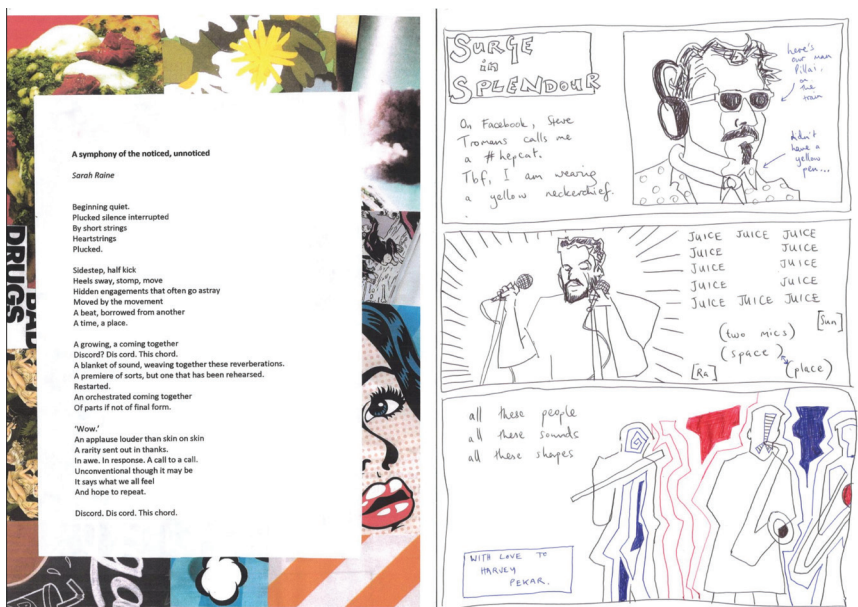 A symphony of the noticed, unnoticed
Sarah Raine
Beginning quiet.
Plucked silence interrupted
By short strings
Heartstrings
Plucked.
Sidestep, half kick
Heels sway, stomp, move
Hidden engagements that often go astray
Moved by the movement
A beat, borrowed from another
A time, a place.
A growing, a coming together
Discord? Dis cord. This chord.
A blanket of sound, weaving together these reverberations.
A premiere of sorts, but one that has been rehearsed.
Restarted.
An orchestrated coming together
Of parts if not of final form.
'Wow.'
An applause louder than skin on skin
A rarity sent out in thanks.
In awe. In response. A call to a call.
Unconventional though it may be
It says what we all feel
And hope to repeat.
Discord. Dis cord. This chord.
DRUGS
BAD
SURGE
in
SPLENDOUR
On Facebook, Steve
Tromans calls me
a #hepcat.
Tbf, I am wearing
a yellow neckerchief.
here's
our man
Pillai,
on
the
train
didn't
have a
yellow
pen...
JUICE JUICE JUICE
JUICE JUICE
JUICE JUICE
JUICE JUICE
JUICE JUICE JUICE
[Sun]
(two mics)
(space)
(place)
[Ra]
all these people
all these sounds
all these shapes
WITH LOVE TO
HARVEY
PEKAR.